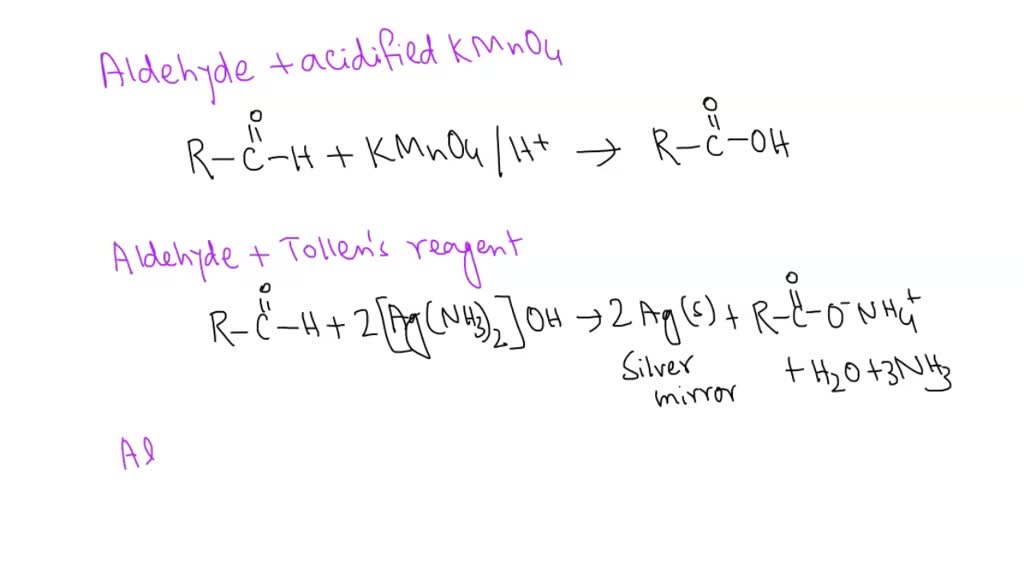 Aldehyde + acidified KMnO4
O
R-C-H + KMnO4/H+ → R-C-OH
O
Aldehyde + Tollen's reagent
O
R-C-H + 2[Ag(NH3)2]OH → 2Ag(s) + R-C-O-NH4+
O
Silver mirror
+ H2O + 3NH3
Al